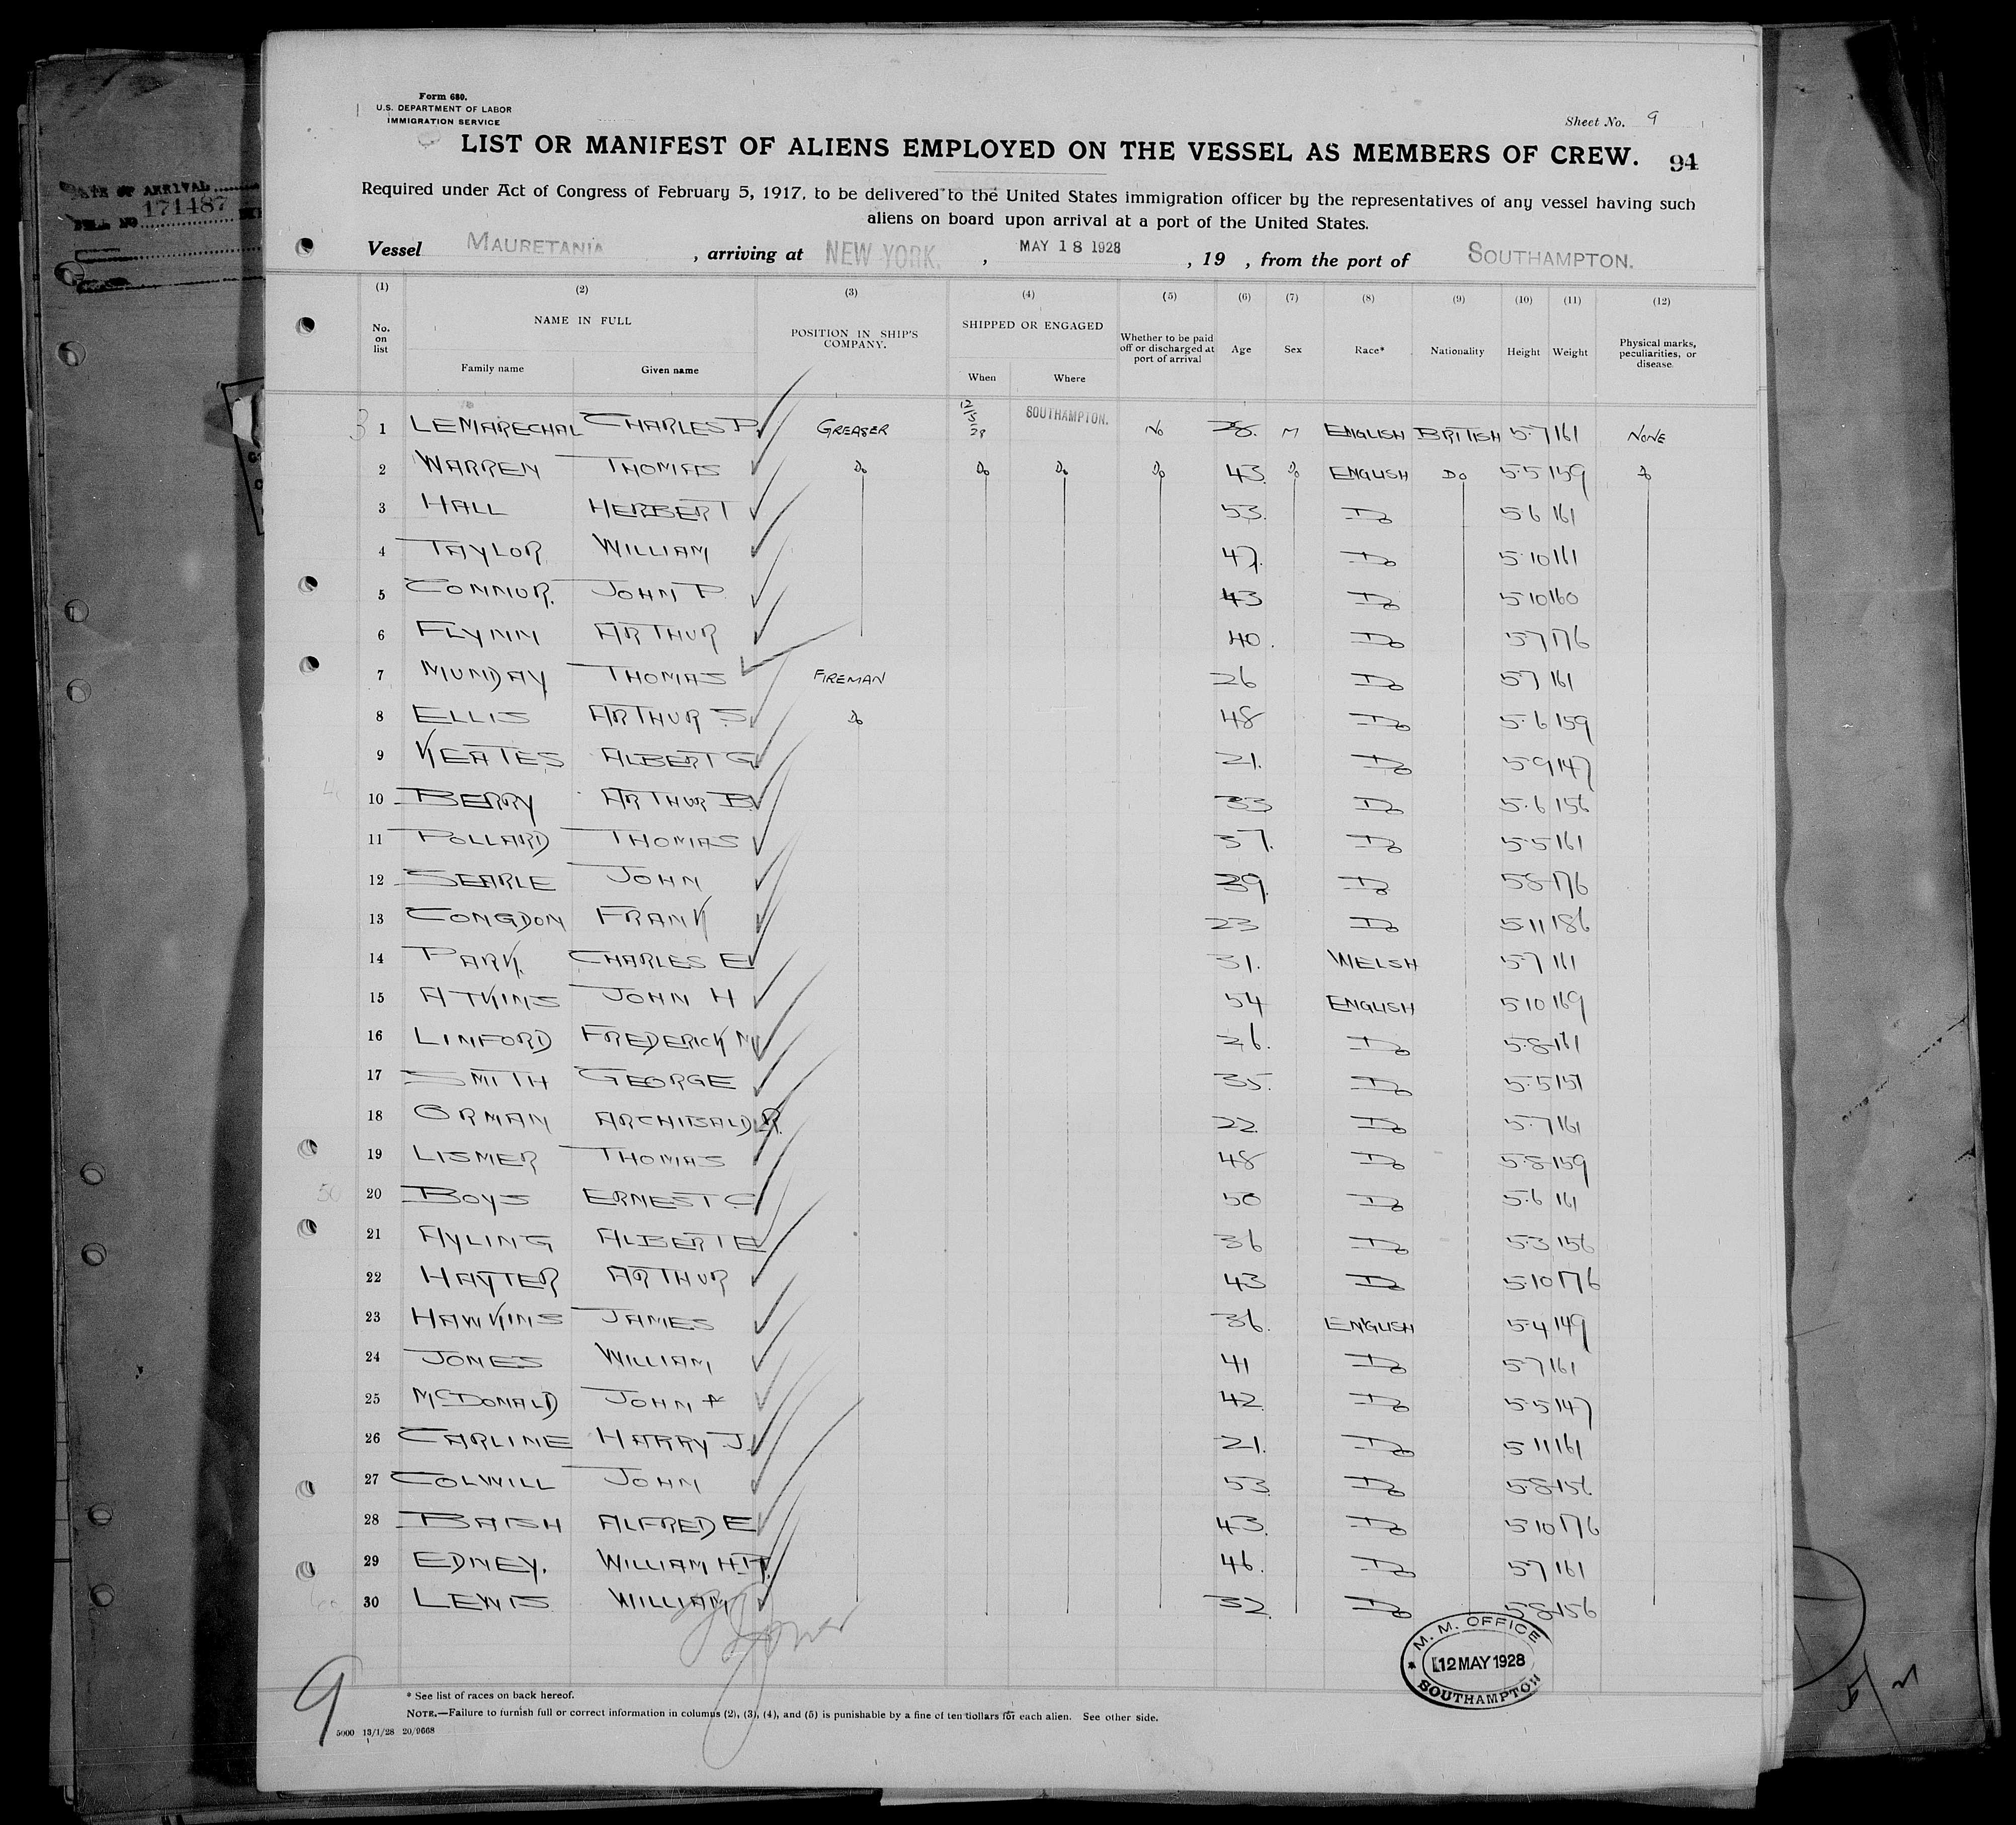 Form 680.
U.S. DEPARTMENT OF LABOR
IMMIGRATION SERVICE
Sheet No. 9
LIST OR MANIFEST OF ALIENS EMPLOYED ON THE VESSEL AS MEMBERS OF CREW. 94
Required under Act of Congress of February 5, 1917, to be delivered to the United States immigration officer by the representatives of any vessel having such
aliens on board upon arrival at a port of the United States.
DATE OF ARRIVAL
171487
Vessel MAURETANIA, arriving at NEW YORK, MAY 18 1928, 19 , from the port of SOUTHAMPTON.
(1) (2) (3) (4) (5) (6) (7) (8) (9) (10) (11) (12)
No. on list NAME IN FULL POSITION IN SHIP'S COMPANY. SHIPPED OR ENGAGED Whether to be paid off or discharged at port of arrival Age Sex Race* Nationality Height Weight Physical marks, peculiarities, or disease.
Family name Given name When Where
1 LEMARECHAL CHARLES P. GREASER 12/5/28 SOUTHAMPTON. NO 28. M ENGLISH BRITISH 5·7 161 NONE
2 WARREN THOMAS Do Do Do Do 43. Do ENGLISH Do 5·5 159 Do
3 HALL HERBERT 53. Do 5·6 161
4 TAYLOR WILLIAM 47. Do 5·10 161
5 CONNOR. JOHN P 43 Do 5·10 160
6 FLYNN ARTHUR 40. Do 5·7 176
7 MUNDAY THOMAS FIREMAN 26 Do 5·7 161
8 ELLIS ARTHUR S. Do 48 Do 5·6 159
9 KEATES ALBERT G. 21. Do 5·9 147
10 BERRY ARTHUR B. 33 Do 5·6 156
11 POLLARD THOMAS 37. Do 5·5 161
12 SEARLE JOHN 39. Do 5·8 176
13 CONGDON FRANK 23 Do 5·11 186
14 PARK. CHARLES E 31. WELSH 5·7 161
15 ATKINS JOHN H 54 ENGLISH 5·10 169
16 LINFORD FREDERICK M 26. Do 5·8 161
17 SMITH GEORGE 35. Do 5·5 151
18 ORMAN ARCHIBALD R. 22. Do 5·7 161
19 LISMER THOMAS 48 Do 5·8 159
20 BOYS ERNEST C 50 Do 5·6 161
21 AYLING ALBERT E 36 Do 5·3 156
22 HAYTER ARTHUR 43 Do 5·10 176
23 HAWKINS JAMES 36. ENGLISH 5·4 149
24 JONES WILLIAM 41 Do 5·7 161
25 McDONALD JOHN A 42. Do 5·5 147
26 CARLINE HARRY J. 21. Do 5·11 161
27 COLWILL JOHN 53. Do 5·8 156
28 BAISH ALFRED E 43. Do 5·10 176
29 EDNEY. WILLIAM H.T. 46. Do 5·7 161
30 LEWIS WILLIAM 32. Do 5·8 156
M. M. OFFICE
12 MAY 1928
SOUTHAMPTON
9
* See list of races on back hereof.
NOTE.—Failure to furnish full or correct information in columns (2), (3), (4), and (5) is punishable by a fine of ten dollars for each alien. See other side.
5000 13/1/28 20/9668